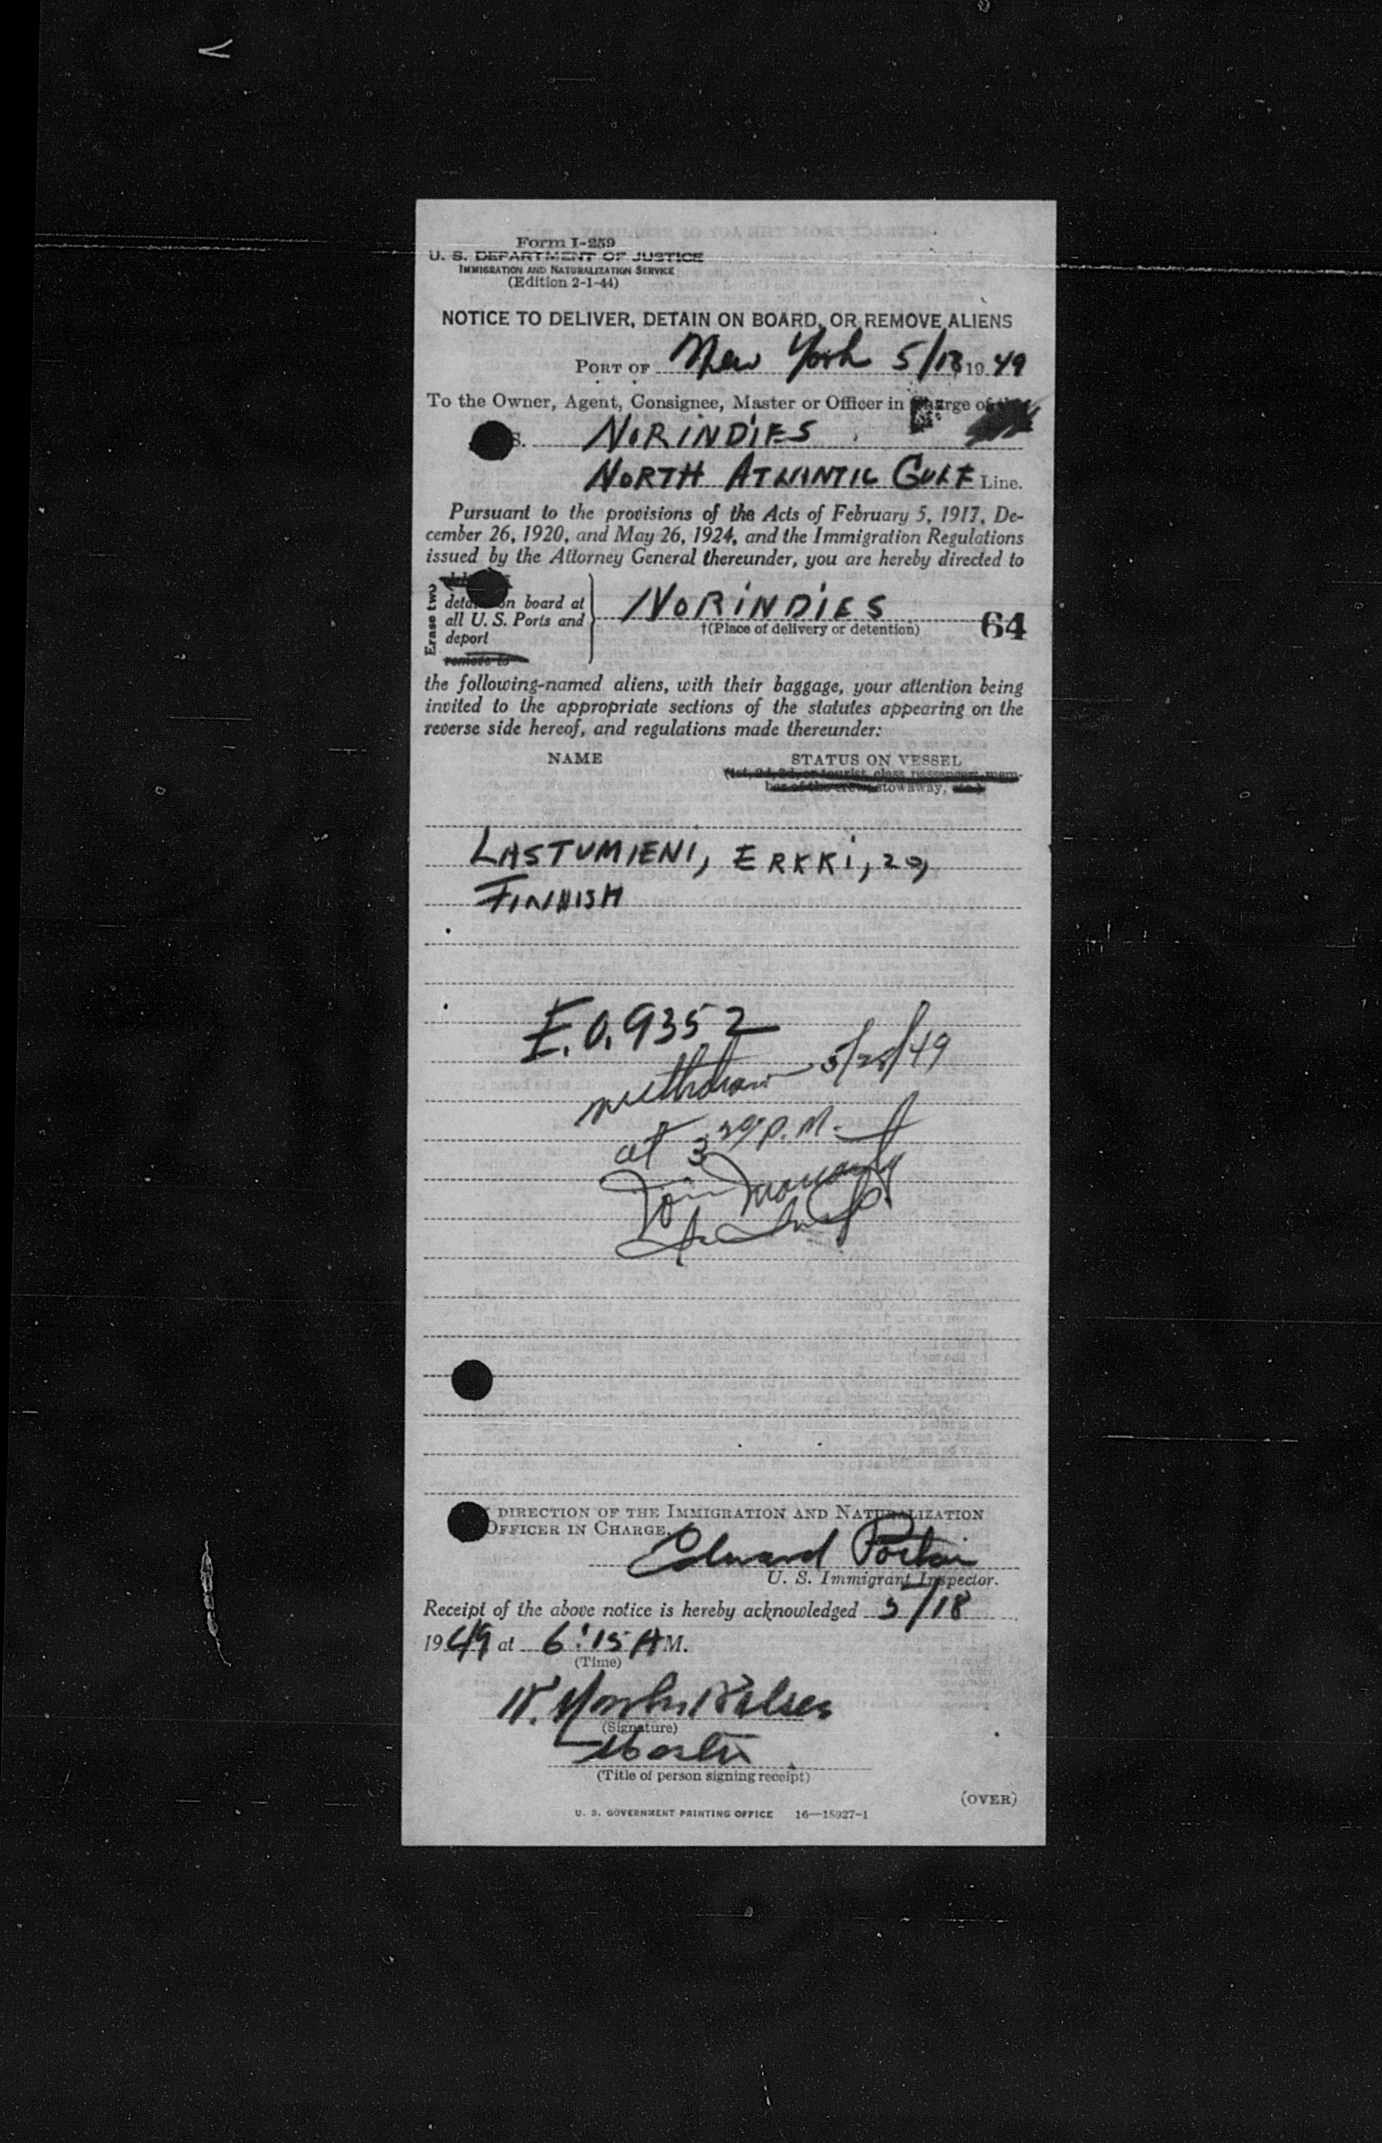 Form I-259
U. S. DEPARTMENT OF JUSTICE
IMMIGRATION AND NATURALIZATION SERVICE
(Edition 2-1-44)
NOTICE TO DELIVER, DETAIN ON BOARD, OR REMOVE ALIENS
PORT OF New York 5/18, 1949
To the Owner, Agent, Consignee, Master or Officer in Charge of the
S. NORINDIES
NORTH ATLANTIC GULF Line.
Pursuant to the provisions of the Acts of February 5, 1917, De-
cember 26, 1920, and May 26, 1924, and the Immigration Regulations
issued by the Attorney General thereunder, you are hereby directed to
Erase two
detain on board at
all U. S. Ports and
deport
remove to
NORINDIES
†(Place of delivery or detention)
64
the following-named aliens, with their baggage, your attention being
invited to the appropriate sections of the statutes appearing on the
reverse side hereof, and regulations made thereunder:
NAME STATUS ON VESSEL
(1st, 2d, 3d, or tourist class passenger, mem-
ber of the crew, stowaway, etc.)
LASTUMIENI, ERKKI, 20,
FINNISH
E.O. 9352
withdrawn 5/25/49
at 3 29 P.M.
DIRECTION OF THE IMMIGRATION AND NATURALIZATION
OFFICER IN CHARGE.
Edward
U. S. Immigrant Inspector.
Receipt of the above notice is hereby acknowledged 5/18
1949 at 6:15 A M.
(Time)
(Signature)
Master
(Title of person signing receipt)
(OVER)
U. S. GOVERNMENT PRINTING OFFICE 16—15927-1